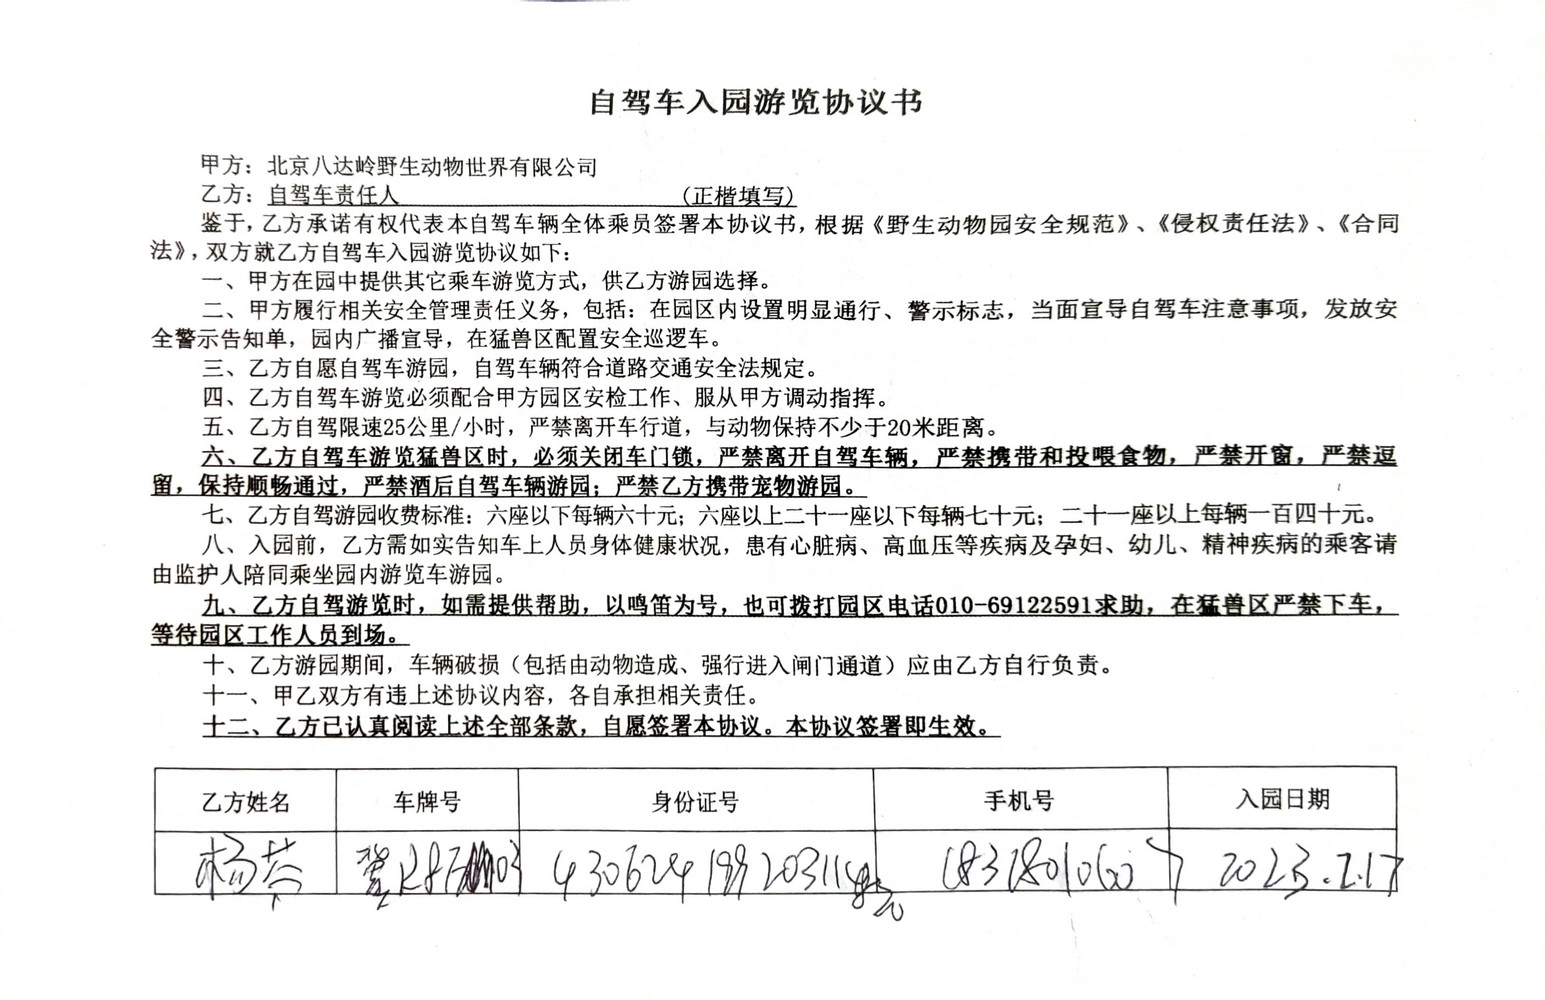 自驾车入园游览协议书
甲方：北京八达岭野生动物世界有限公司
乙方：自驾车责任人 (正楷填写)
鉴于，乙方承诺有权代表本自驾车辆全体乘员签署本协议书，根据《野生动物园安全规范》、《侵权责任法》、《合同
法》，双方就乙方自驾车入园游览协议如下：
一、甲方在园中提供其它乘车游览方式，供乙方游园选择。
二、甲方履行相关安全管理责任义务，包括：在园区内设置明显通行、警示标志，当面宣导自驾车注意事项，发放安
全警示告知单，园内广播宣导，在猛兽区配置安全巡逻车。
三、乙方自愿自驾车游园，自驾车辆符合道路交通安全法规定。
四、乙方自驾车游览必须配合甲方园区安检工作、服从甲方调动指挥。
五、乙方自驾限速25公里/小时，严禁离开车行道，与动物保持不少于20米距离。
六、乙方自驾车游览猛兽区时，必须关闭车门锁，严禁离开自驾车辆，严禁携带和投喂食物，严禁开窗，严禁逗
留，保持顺畅通过，严禁酒后自驾车辆游园；严禁乙方携带宠物游园。
七、乙方自驾游园收费标准：六座以下每辆六十元；六座以上二十一座以下每辆七十元；二十一座以上每辆一百四十元。
八、入园前，乙方需如实告知车上人员身体健康状况，患有心脏病、高血压等疾病及孕妇、幼儿、精神疾病的乘客请
由监护人陪同乘坐园内游览车游园。
九、乙方自驾游览时，如需提供帮助，以鸣笛为号，也可拨打园区电话010-69122591求助，在猛兽区严禁下车，
等待园区工作人员到场。
十、乙方游园期间，车辆破损（包括由动物造成、强行进入闸门通道）应由乙方自行负责。
十一、甲乙双方有违上述协议内容，各自承担相关责任。
十二、乙方已认真阅读上述全部条款，自愿签署本协议。本协议签署即生效。
乙方姓名 车牌号 身份证号 手机号 入园日期
杨 430624199203114 2023.2.17